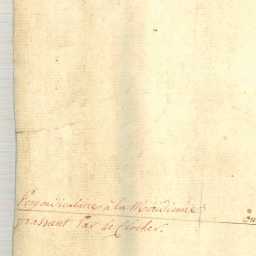 Perpendiculaire à la Meridienne
passant Par le Clocher.